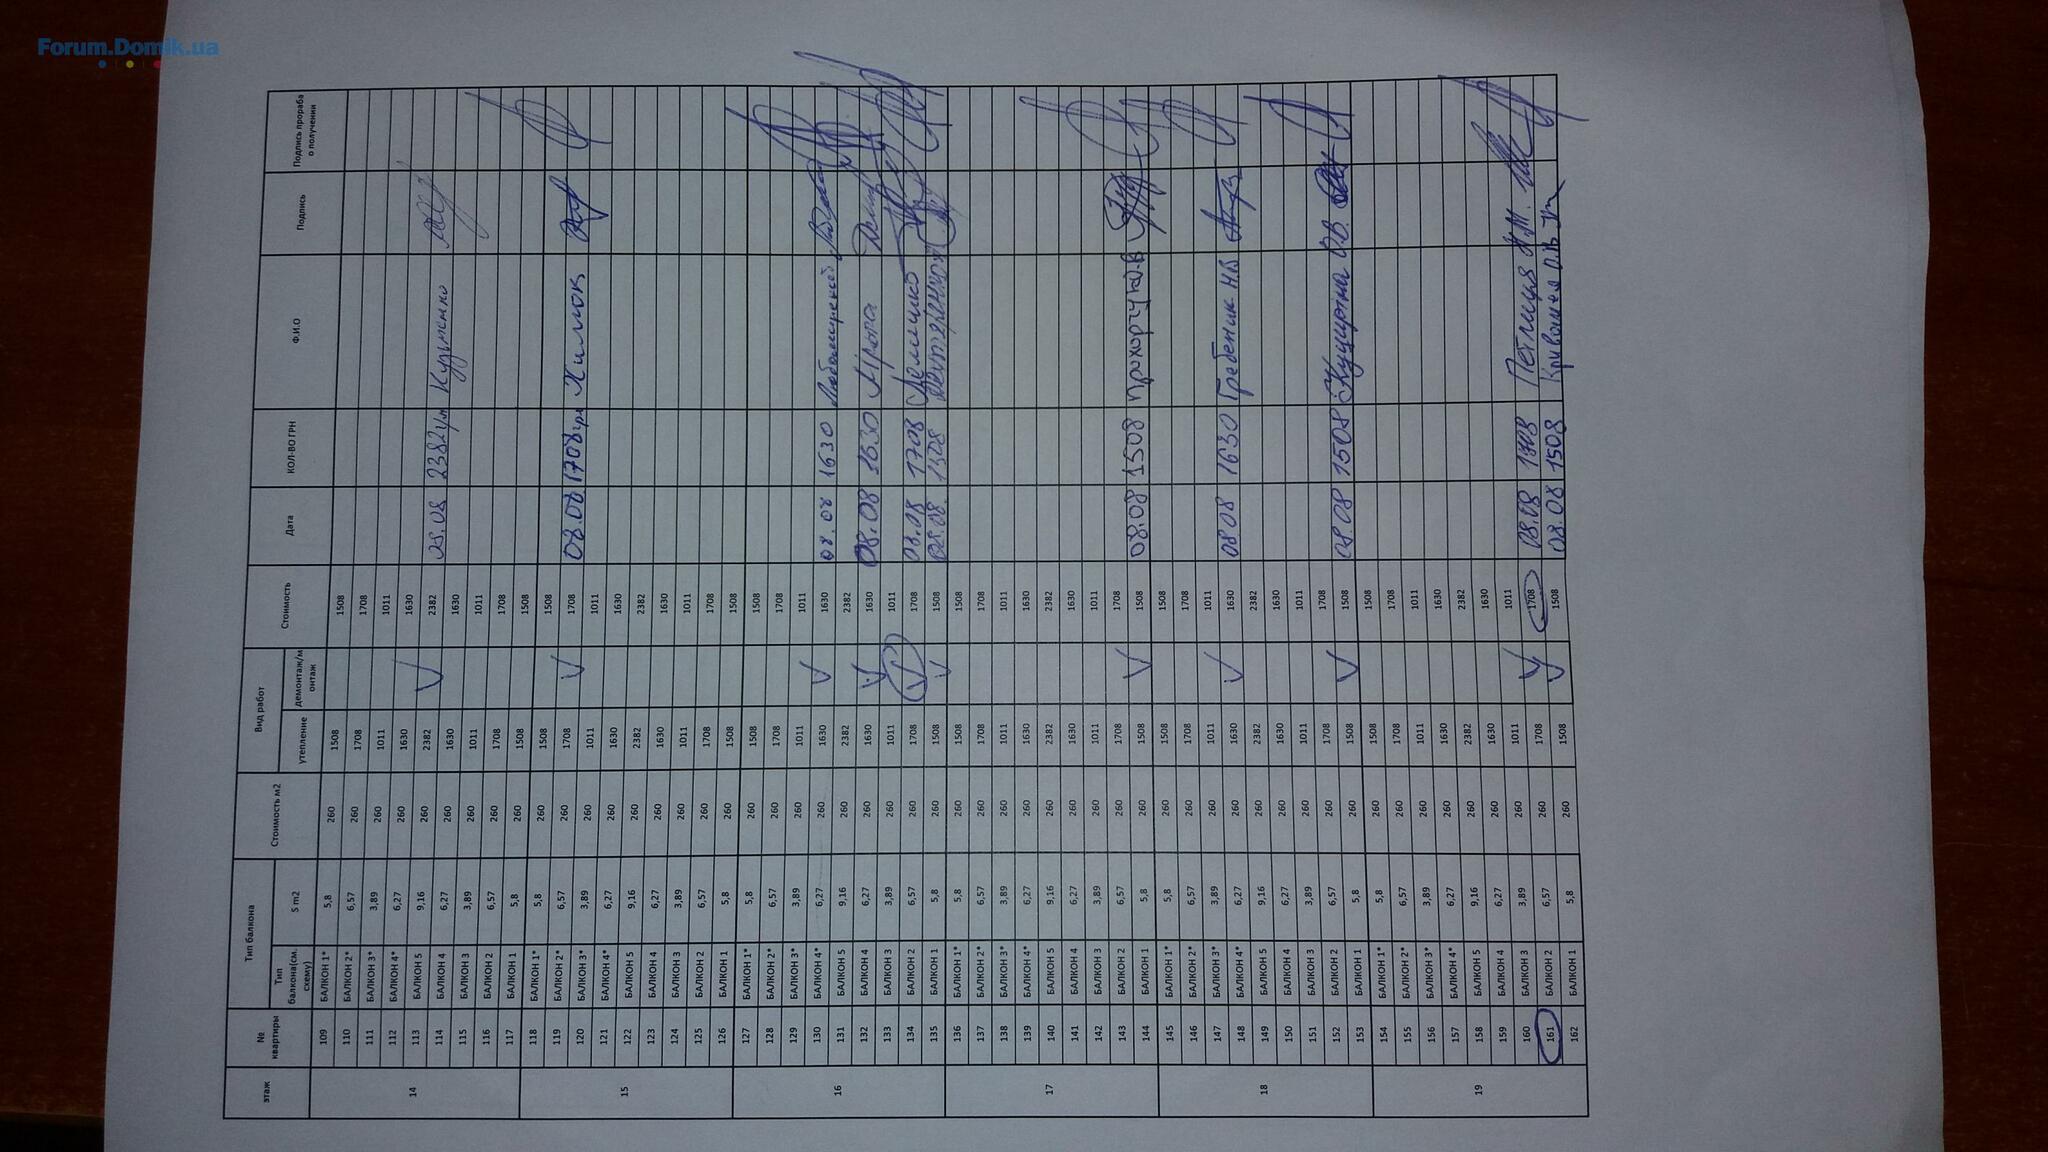 Forum.Domik.ua
этаж № квартиры Тип балкона Стоимость м2 Вид работ Стоимость Дата КОЛ-ВО ГРН Ф.И.О Подпись Подпись прораба о получении
Тип балкона(см. схему) S m2 утепление демонтаж/монтаж
14
109 БАЛКОН 1* 5,8 260 1508 1508
110 БАЛКОН 2* 6,57 260 1708 1708
111 БАЛКОН 3* 3,89 260 1011 1011
112 БАЛКОН 4* 6,27 260 1630 1630
113 БАЛКОН 5 9,16 260 2382 V 2382 08.08 2382 Кузьменко
114 БАЛКОН 4 6,27 260 1630 1630
115 БАЛКОН 3 3,89 260 1011 1011
116 БАЛКОН 2 6,57 260 1708 1708
117 БАЛКОН 1 5,8 260 1508 1508
15
118 БАЛКОН 1* 5,8 260 1508 1508
119 БАЛКОН 2* 6,57 260 1708 V 1708 08.08 1708 грн Химок
120 БАЛКОН 3* 3,89 260 1011 1011
121 БАЛКОН 4* 6,27 260 1630 1630
122 БАЛКОН 5 9,16 260 2382 2382
123 БАЛКОН 4 6,27 260 1630 1630
124 БАЛКОН 3 3,89 260 1011 1011
125 БАЛКОН 2 6,57 260 1708 1708
126 БАЛКОН 1 5,8 260 1508 1508
16
127 БАЛКОН 1* 5,8 260 1508 1508
128 БАЛКОН 2* 6,57 260 1708 1708
129 БАЛКОН 3* 3,89 260 1011 1011
130 БАЛКОН 4* 6,27 260 1630 V 1630 08.08 1630
131 БАЛКОН 5 9,16 260 2382 2382
132 БАЛКОН 4 6,27 260 1630 V 1630 08.08 1630
133 БАЛКОН 3 3,89 260 1011 1011
134 БАЛКОН 2 6,57 260 1708 V 1708 08.08 1708
135 БАЛКОН 1 5,8 260 1508 V 1508 08.08. 1508
17
136 БАЛКОН 1* 5,8 260 1508 1508
137 БАЛКОН 2* 6,57 260 1708 1708
138 БАЛКОН 3* 3,89 260 1011 1011
139 БАЛКОН 4* 6,27 260 1630 1630
140 БАЛКОН 5 9,16 260 2382 2382
141 БАЛКОН 4 6,27 260 1630 1630
142 БАЛКОН 3 3,89 260 1011 1011
143 БАЛКОН 2 6,57 260 1708 1708
144 БАЛКОН 1 5,8 260 1508 V 1508 08.08 1508
18
145 БАЛКОН 1* 5,8 260 1508 1508
146 БАЛКОН 2* 6,57 260 1708 1708
147 БАЛКОН 3* 3,89 260 1011 1011
148 БАЛКОН 4* 6,27 260 1630 V 1630 0808 1630 Гребеник Н.В
149 БАЛКОН 5 9,16 260 2382 2382
150 БАЛКОН 4 6,27 260 1630 1630
151 БАЛКОН 3 3,89 260 1011 1011
152 БАЛКОН 2 6,57 260 1708 1708
153 БАЛКОН 1 5,8 260 1508 V 1508 08.08 1508
19
154 БАЛКОН 1* 5,8 260 1508 1508
155 БАЛКОН 2* 6,57 260 1708 1708
156 БАЛКОН 3* 3,89 260 1011 1011
157 БАЛКОН 4* 6,27 260 1630 1630
158 БАЛКОН 5 9,16 260 2382 2382
159 БАЛКОН 4 6,27 260 1630 1630
160 БАЛКОН 3 3,89 260 1011 1011
161 БАЛКОН 2 6,57 260 1708 V 1708 08.08 1708
162 БАЛКОН 1 5,8 260 1508 V 1508 08.08 1508